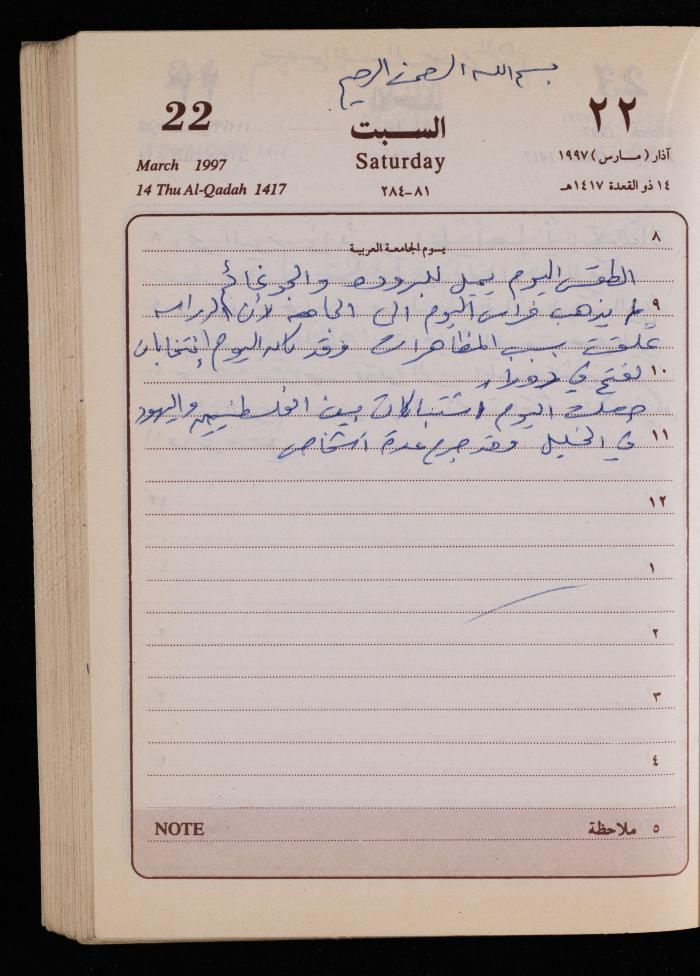 بسم الله الرحمن الرحيم
22
السبت
٢٢
March 1997
Saturday
آذار (مارس) ١٩٩٧
14 Thu Al-Qadah 1417
٨١-٢٨٤
١٤ ذو القعدة ١٤١٧هـ
٨
يوم الجامعة العربية
الطقس اليوم يميل للبروده والجو غائم
٩ لم يذهب فراس اليوم الى الجامعة لأن الدراسه
علقت بسبب المظاهرات وقد كانت اليوم إنتخابات
١٠ لفتح في دورا
حصلت اليوم اشتباكات بين الفلسطينيين واليهود
١١ في الخليل وقد جرح عدة اشخاص
١٢
١
٢
٣
٤
NOTE
٥ ملاحظة